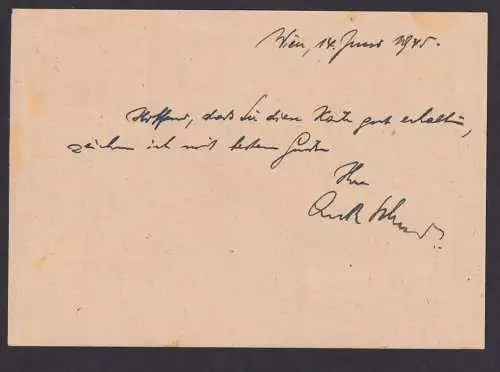 Wien, 14. Juni 1945.
Hoffend, dass Sie diese Karte gut erhalten,
zeichne ich mit besten Grüßen
Ihr